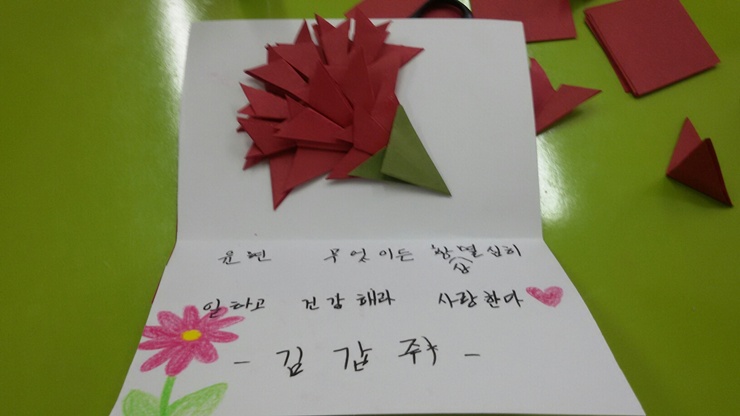 윤현 무엇이든 항상열심히
일하고 건강해라 사랑한다
- 김 갑